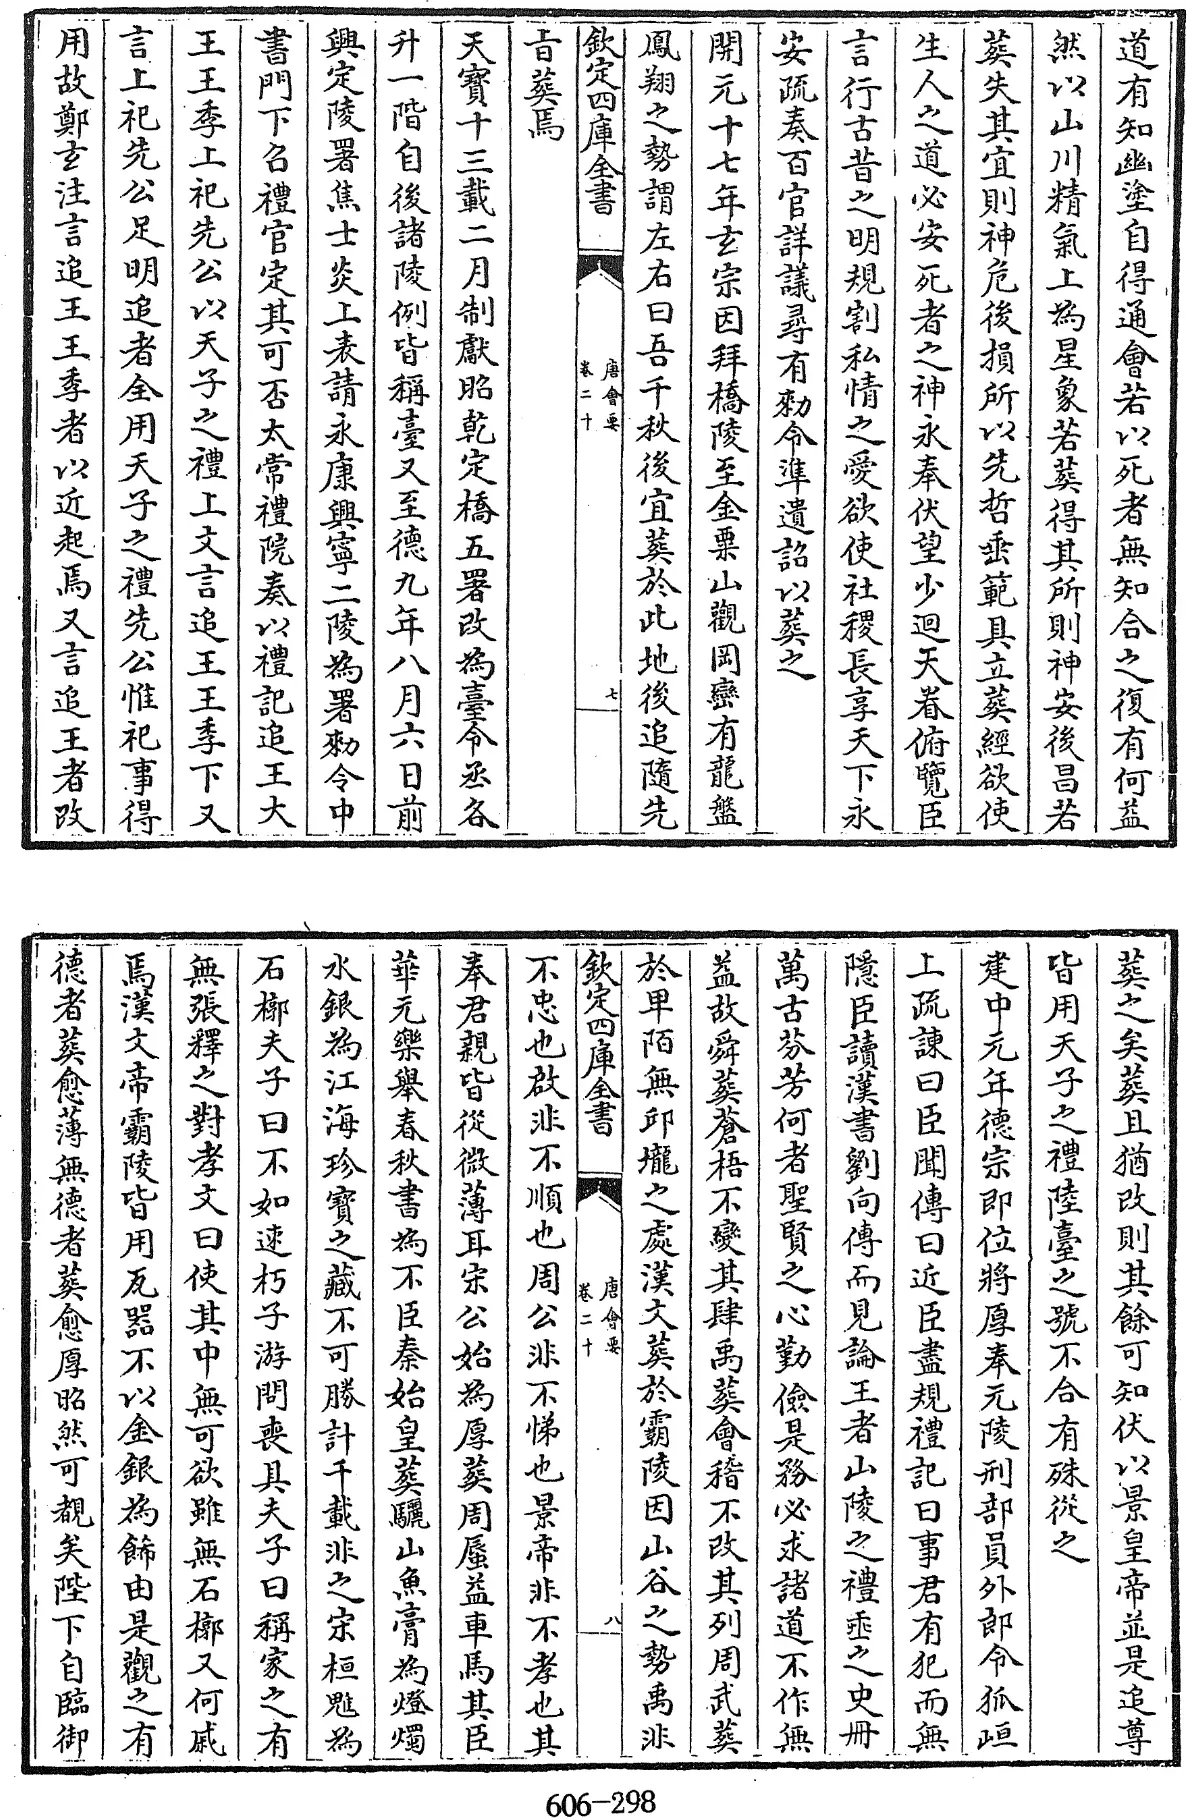 道有知幽塗自得通會若以死者無知合之復有何益
然以山川精氣上為星象若葬得其所則神安後昌若
葬失其宜則神危後損所以先哲垂範具立葬經欲使
生人之道必安死者之神永奉伏望少迴天眷俯覽臣
言行古昔之明規割私情之愛欲使社稷長享天下永
安疏奏百官詳議尋有勑令準遺詔以葬之
開元十七年玄宗因拜橋陵至金粟山觀岡巒有龍盤
鳳翔之勢謂左右曰吾千秋後宜葬於此地後追隨先
欽定四庫全書
唐會要
卷二十
七
旨葬焉
天寶十三載二月制獻昭乾定橋五署改為臺令丞各
升一階自後諸陵例皆稱臺又至德九年八月六日前
興定陵署焦士炎上表請永康興寧二陵為署勑令中
書門下召禮官定其可否太常禮院奏以禮記追王大
王王季上祀先公以天子之禮上文言追王王季下又
言上祀先公足明追者全用天子之禮先公惟祀事得
用故鄭玄注言追王王季者以近起焉又言追王者改
葬之矣葬且猶改則其餘可知伏以景皇帝並是追尊
皆用天子之禮陸臺之號不合有殊從之
建中元年德宗即位將厚奉元陵刑部員外郎令狐峘
上疏諫曰臣聞傳曰近臣盡規禮記曰事君有犯而無
隱臣讀漢書劉向傳而見論王者山陵之禮垂之史冊
萬古芬芳何者聖賢之心勤儉是務必求諸道不作無
益故舜葬蒼梧不變其肆禹葬會稽不改其列周武葬
於畢陌無邱壠之處漢文葬於霸陵因山谷之勢禹非
欽定四庫全書
唐會要
卷二十
八
不忠也啟非不順也周公非不悌也景帝非不孝也其
奉君親皆從微薄耳宋公始為厚葬周蜃益車馬其臣
華元樂舉春秋書為不臣秦始皇葬驪山魚膏為燈燭
水銀為江海珍寶之藏不可勝計千載非之宋桓魋為
石槨夫子曰不如速朽子游問喪具夫子曰稱家之有
無張釋之對孝文曰使其中無可欲雖無石槨又何戚
焉漢文帝霸陵皆用瓦器不以金銀為飾由是觀之有
德者葬愈薄無德者葬愈厚昭然可覩矣陛下自臨御
606-298